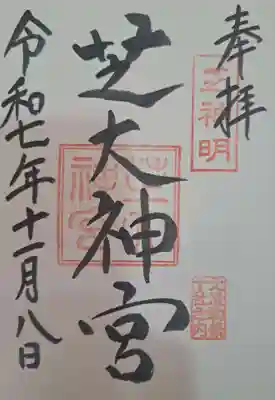 奉拝
芝神明
芝大神宮
令和七年十一月八日